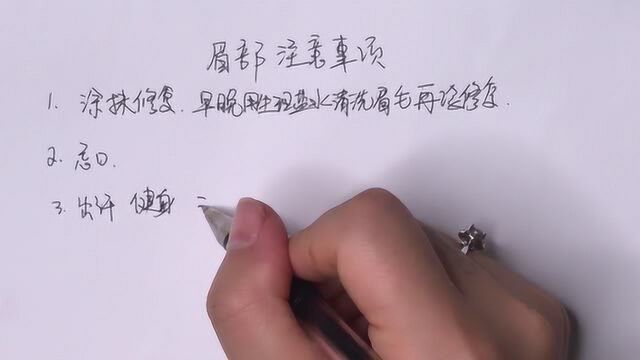 眉部注意事项
1. 涂抹修复. 早晚用生理盐水清洗眉毛再涂修复.
2. 忌口.
3. 出汗 健身